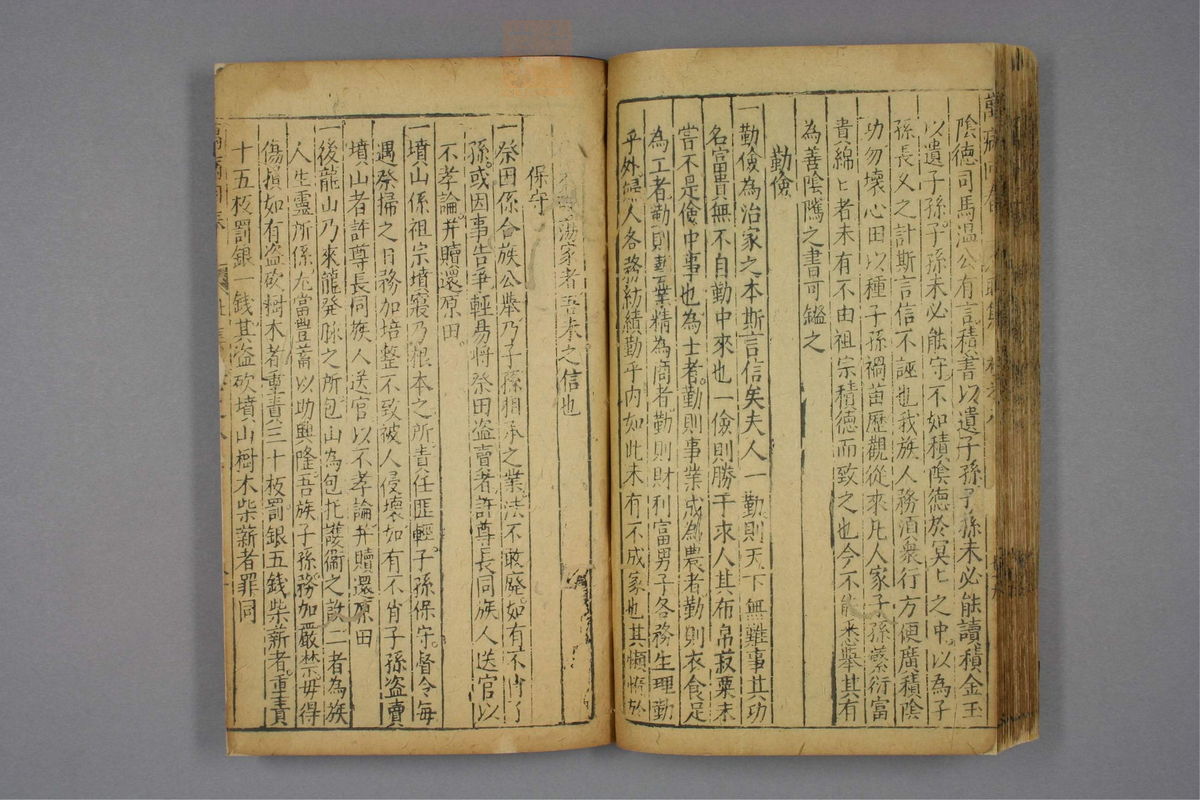 陰德司馬溫公有言積書以遺子孫子孫未必能讀積金玉
以遺子孫子孫未必能守不如積陰德於冥匕之中以為子
孫長乆之計斯言信不誣也我族人務須衆行方便廣積陰
功勿壞心田以種子孫禍苗歷觀從來凡人家子孫蕃衍富
貴綿匕者未有不由祖宗積德而致之也今不能悉舉其有
為善陰隲之書可鑑之
勤儉
一勤儉為治家之本斯言信矣夫人一勤則天下無難事其功
名富貴無不自勤中來也一儉則勝于求人其布帛菽粟未
甞不是儉中事也為士者勤則事業成為農者勤則衣食足
為工者勤則藝業精為商者勤則財利富男子各務生理勤
乎外婦人各務紡績勤乎內如此未有不成家也其懶惰於
蕩家者吾未之信也
保守
一祭田係合族公舉乃子孫相承之業法不敢廢如有不肖子
孫或因事告爭輕易將祭田盗賣者許尊長同族人送官以
不孝論并贖還原田
一墳山係祖宗墳寢乃根本之所責任匪輕子孫保守督令每
遇祭掃之日務加培整不致被人侵壞如有不肖子孫盗賣
墳山者許尊長同族人送官以不孝論并贖還原田
一後龍山乃來龍發脉之所包山為包托護衛之設二者為族
人生靈所係尤當豊蓄以助興隆吾族子孫務加嚴禁毋得
傷損如有盗砍樹木者重責三十板罰銀五錢柴薪者重責
十五板罰銀 錢其盗砍墳山樹木柴薪者罪同